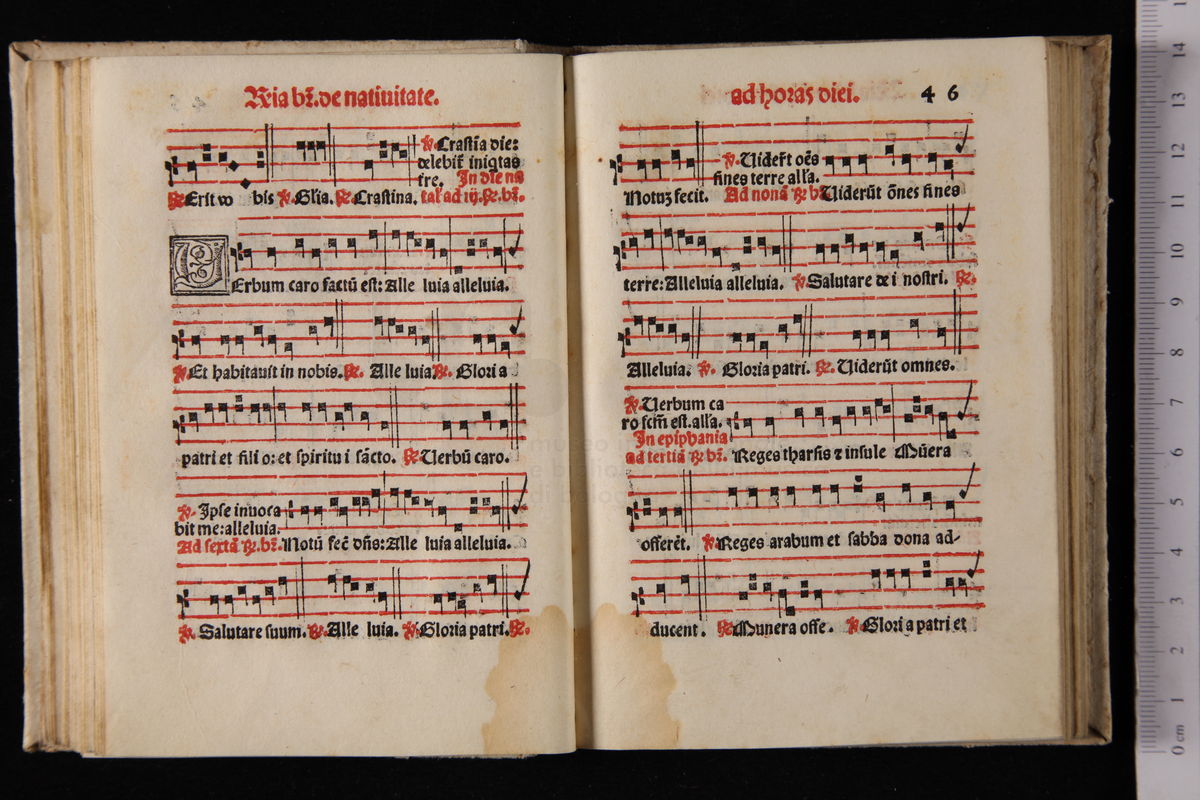 R̄ria br̄. de natiuitate.
℣. Crastīa die:
delebit̄ iniqtas
tre. In die na
℟. Erit vo bis ℣. Glīa. ℟. Crastina. tal' ad iij. ℟. br̄.
VErbum caro factū est: Alle luia alleluia.
℣. Et habitauit in nobis. ℟. Alle luia ℟. Glori a
patri et fili o: et spiritu i sācto. ℟. Verbū caro.
℣. Ipse inuoca
bit me: alleluia.
Ad sextā ℟. br̄. Notū fec̄ dn̄s: Alle luia alleluia.
℣. Salutare suum. ℟. Alle luia. ℣. Gloria patri. ℟.
ad horas diei. 46
℣. Uider̄t oēs
fines terre alla.
Notuz fecit. Ad nonā ℟ b Uiderūt ōnes fines
terre: Alleluia alleluia. ℣. Salutare de i nostri. ℟.
Alleluia. ℣. Gloria patri. ℟. Uiderūt omnes.
℣. Uerbum ca
ro fcm̄ est. alla.
In epiphania
ad tertiā ℟ br̄. Reges tharsis ⁊ insule Mūera
offerēt. ℣. Reges arabum et sabba dona ad-
ducent. ℟. Munera offe. ℣. Glori a patri et
14
13
12
11
10
9
8
7
6
5
4
3
2
1
0 cm